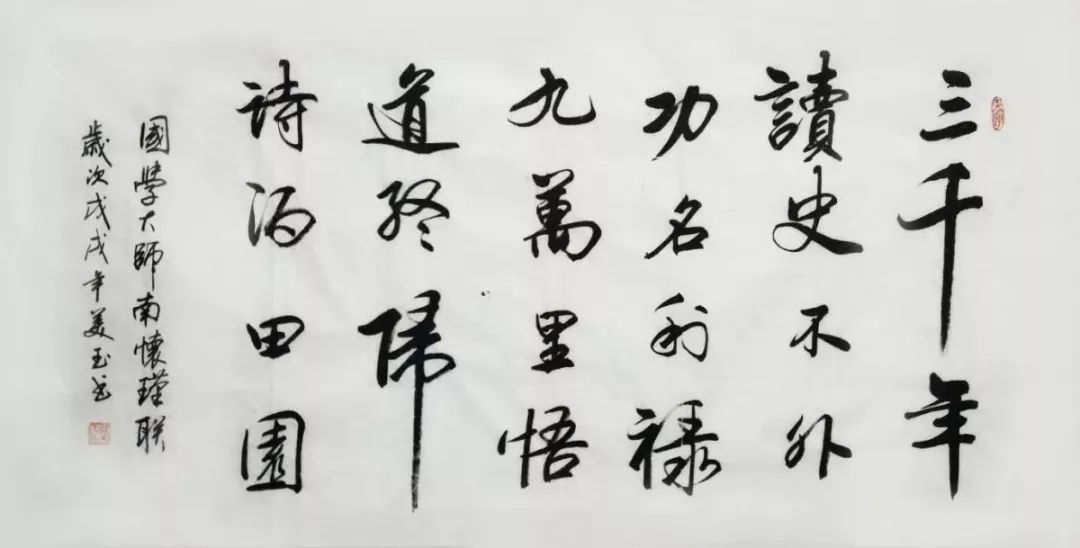 三千年
讀史不外
功名利祿
九萬里悟
道終歸
詩酒田園
國學大師南懷瑾联
歲次戊戌年美玉书